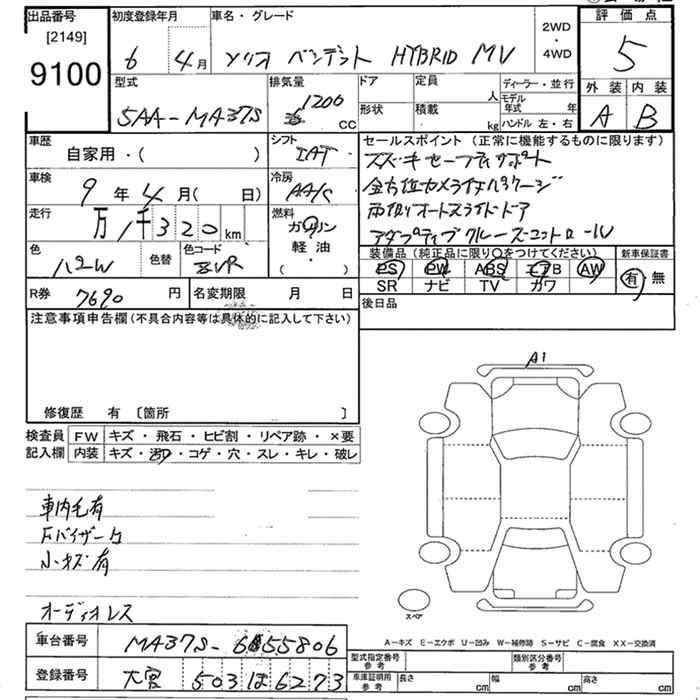 出品番号 初度登録年月 車名・グレード 評価点
[2149] 2WD
9100 6 年 4月 ソリオ バンディット HYBRID MV ・ 5
4WD
型式 排気量 ドア 定員 ディーラー・並行 外装 内装
5AA-MA37S 1200 cc 人 モデル年式 年 A B
形状 積載 kg ハンドル 左・右
車歴 シフト セールスポイント (正常に機能するものに限ります)
自家用・( ) IAT スズキセーフティサポート
車検 冷房 全方位カメラ付パッケージ
9年4月( 日) AA/C 両側オートスライドドア
走行 燃料 アダプティブクルーズコントロール
万1千320km ガソリン
色 色替 色コード 軽油 装備品(純正品に限り〇をつけてください) 新車保証書
パールW ZVR ・( ) PS PW ABS エアB AW 有・無
SR ナビ TV カワ
R券 7690円 名変期限 月 日 後日品
注意事項申告欄(不具合内容等は具体的に記入して下さい)
修復歴 有 〔箇所 〕
A1
検査員 FW キズ・飛石・ヒビ割・リペア跡・×要
記入欄 内装 キズ・汚れ・コゲ・穴・スレ・キレ・破レ
車内毛有
Fバイザー
小キズ有
オーディオレス
スペア
A-キズ E-エクボ U-凹み W-補修跡 S-サビ C-腐食 XX-交換済
車台番号 MA37S-655806
型式指定番号 参考 類別区分番号 参考
登録番号 大宮 503 は 6273
車庫証明用 参考 長さ cm 幅 cm 高さ cm